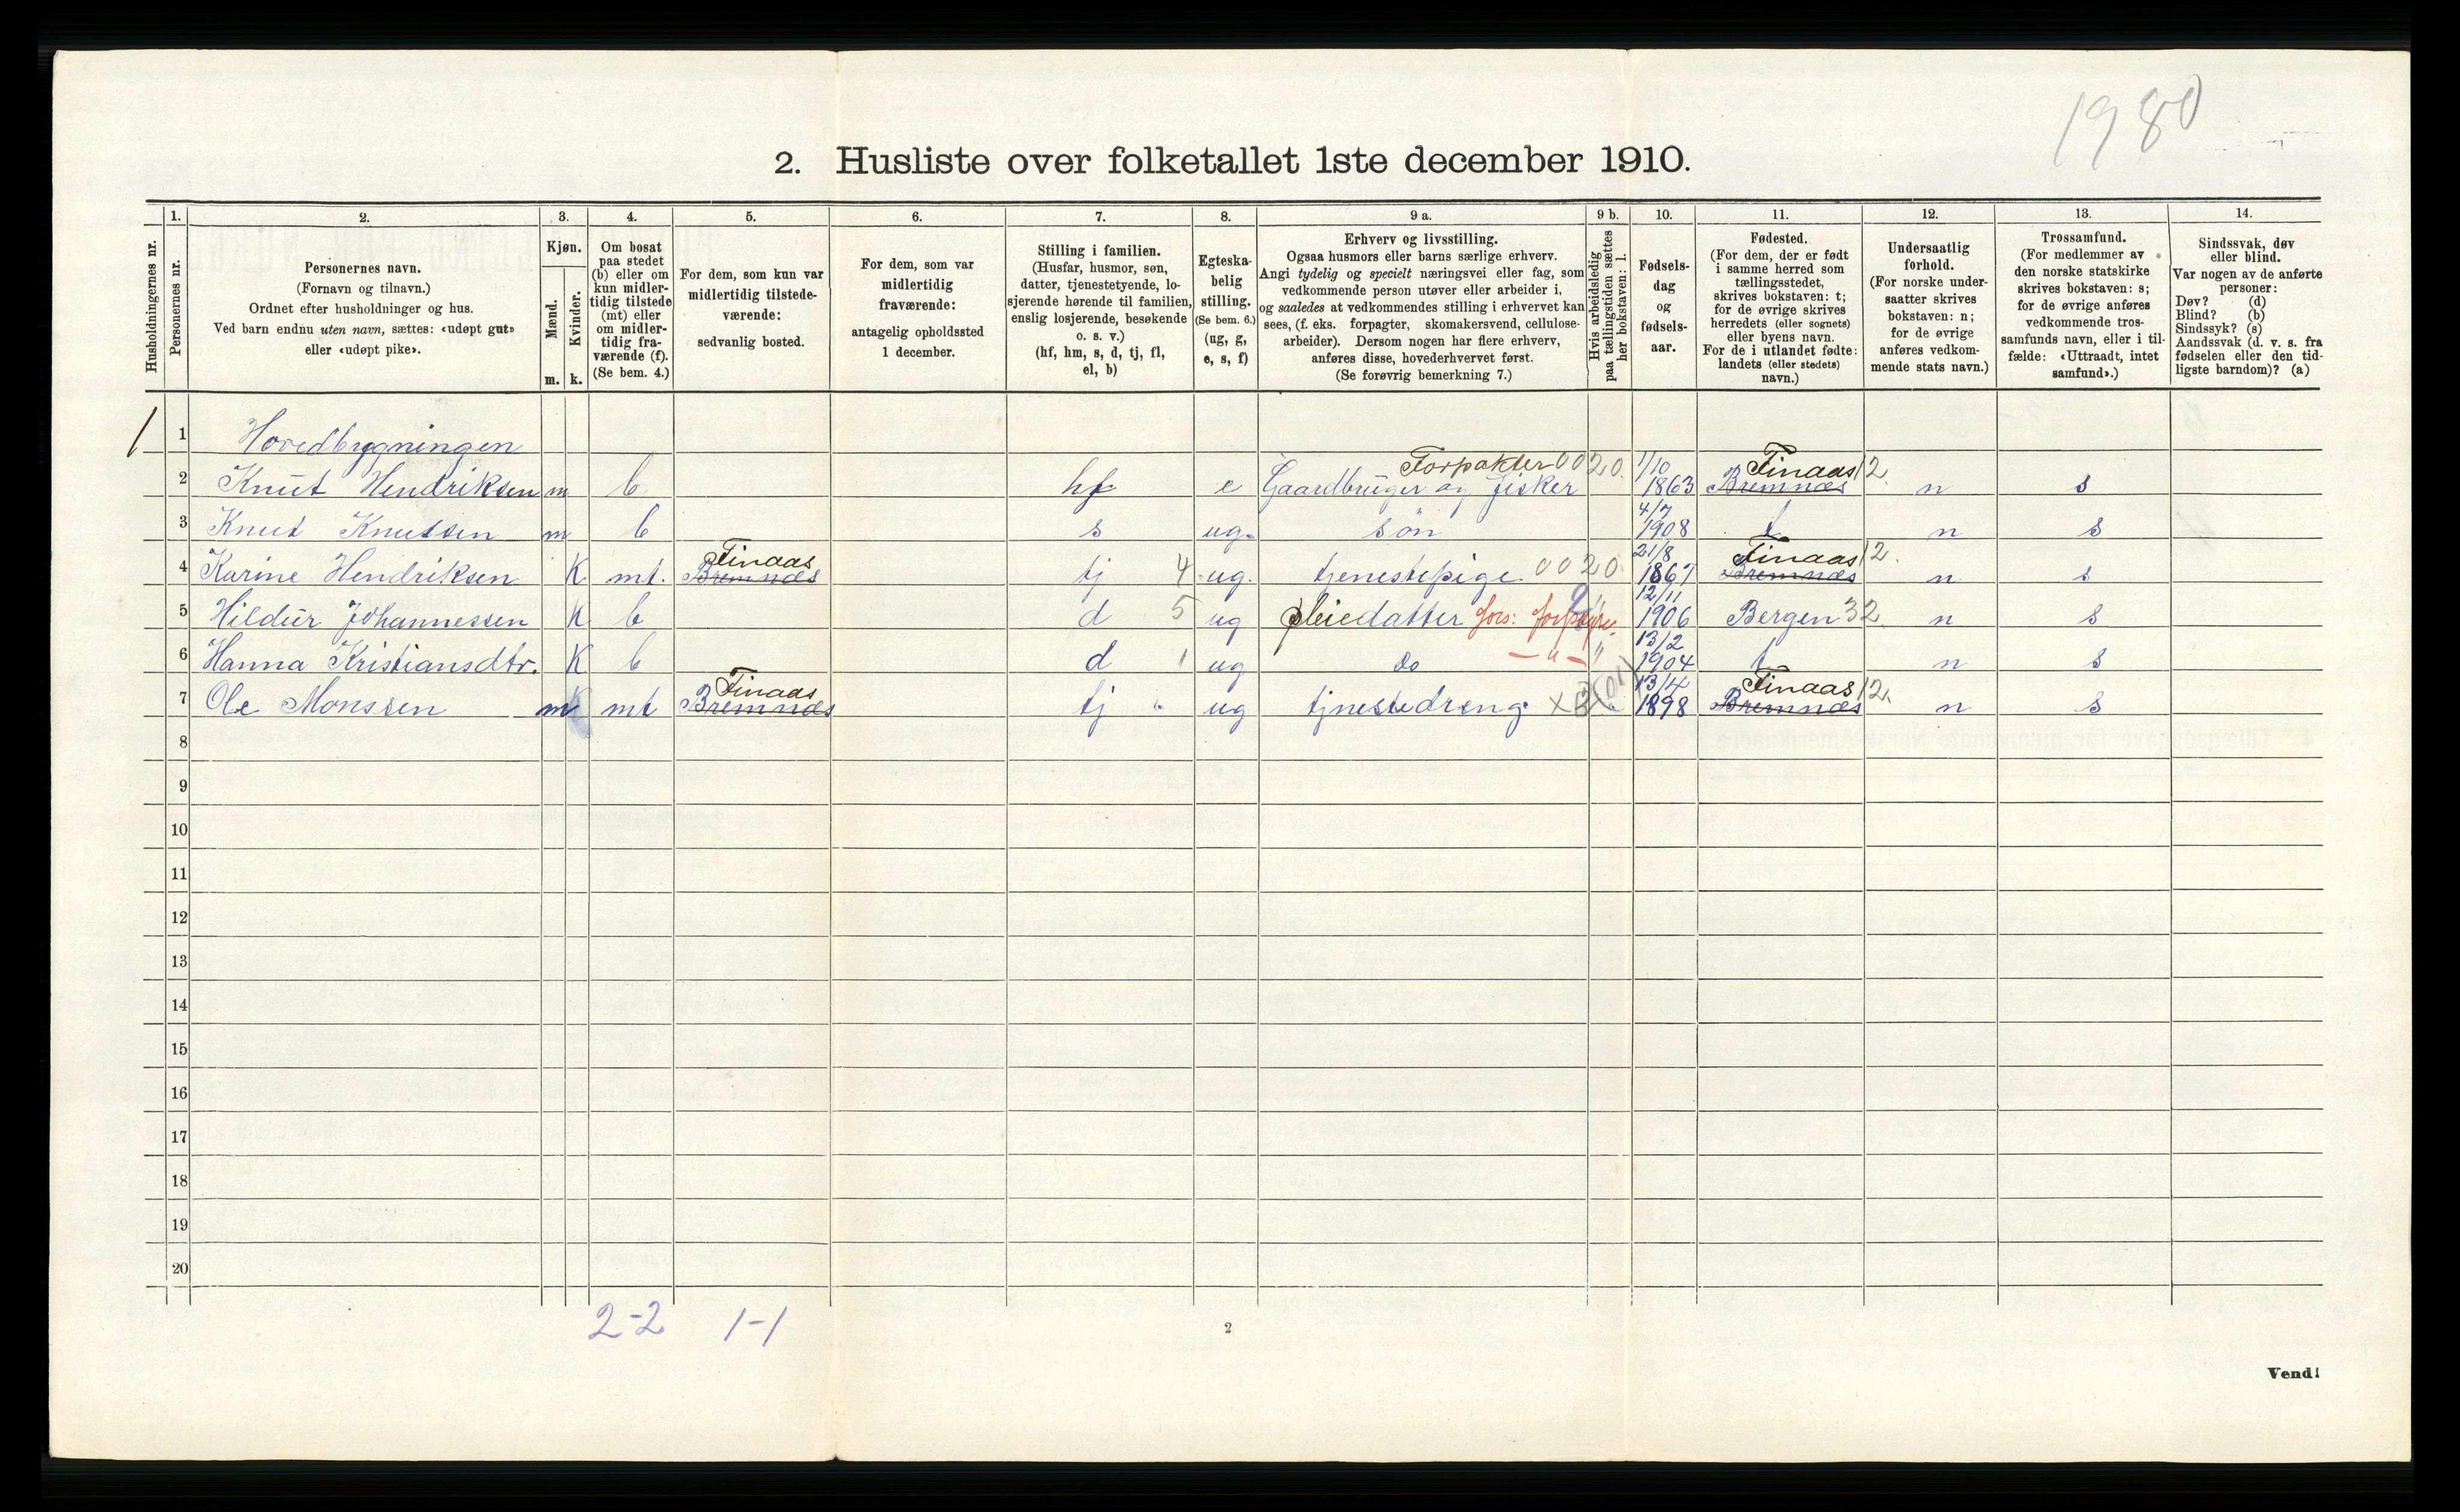 1980
2. Husliste over folketallet 1ste december 1910.
Husholdningernes nr.
1. Personernes nr.
2. Personernes navn.
(Fornavn og tilnavn.)
Ordnet efter husholdninger og hus.
Ved barn endnu uten navn, sættes: «udøpt gut»
eller «udøpt pike».
3. Kjøn.
Mænd. m.
Kvinder. k.
4. Om bosat
paa stedet
(b) eller om
kun midler-
tidig tilstede
(mt) eller
om midler-
tidig fra-
værende (f).
(Se bem. 4.)
5. For dem, som kun var
midlertidig tilstede-
værende:
sedvanlig bosted.
6. For dem, som var
midlertidig
fraværende:
antagelig opholdssted
1 december.
7. Stilling i familien.
(Husfar, husmor, søn,
datter, tjenestetyende, lo-
sjerende hørende til familien,
enslig losjerende, besøkende
o. s. v.)
(hf, hm, s, d, tj, fl,
el, b)
8. Egteska-
belig
stilling.
(Se bem. 6.)
(ug, g,
e, s, f)
9 a. Erhverv og livsstilling.
Ogsaa husmors eller barns særlige erhverv.
Angi tydelig og specielt næringsvei eller fag, som
vedkommende person utøver eller arbeider i,
og saaledes at vedkommendes stilling i erhvervet kan
sees, (f. eks. forpagter, skomakersvend, cellulose-
arbeider). Dersom nogen har flere erhverv,
anføres disse, hovederhvervet først.
(Se forøvrig bemerkning 7.)
9 b. Hvis arbeidsledig
paa tællingstiden sættes
her bokstaven: l.
10. Fødsels-
dag
og
fødsels-
aar.
11. Fødested.
(For dem, der er født
i samme herred som
tællingsstedet,
skrives bokstaven: t;
for de øvrige skrives
herredets (eller sognets)
eller byens navn.
For de i utlandet fødte:
landets (eller stedets)
navn.)
12. Undersaatlig
forhold.
(For norske under-
saatter skrives
bokstaven: n;
for de øvrige
anføres vedkom-
mende stats navn.)
13. Trossamfund.
(For medlemmer av
den norske statskirke
skrives bokstaven: s;
for de øvrige anføres
vedkommende tros-
samfunds navn, eller i til-
fælde: «Uttraadt, intet
samfund».)
14. Sindssvak, døv
eller blind.
Var nogen av de anførte
personer:
Døv? (d)
Blind? (b)
Sindssyk? (s)
Aandssvak (d. v. s. fra
fødselen eller den tid-
ligste barndom)? (a)
1 1 Hovedbygningen
Forpakter 0020 1/10 Finaas 12
2 Knut Hendriksen m b hf e Gaardbruger og fisker 1863 Bremnæs n s
4/7
3 Knut Knutsen m b s ug. søn 1908 t n s
Finaas 21/8 Finaas 12.
4 Karine Hendriksen K mt. Bremnæs tj 4 ug. tjenestepige 0020. 1867 Bremnæs n s
12/11
5 Hildur Johannessen K b d 5 ug pleiedatter fors: 1906 Bergen 32 n s
13/2
6 Hanna Kristiansdtr. K b d 1 ug do — " — " 1904 t n s
Finaas 13/4 Finaas 12.
7 Ole Monssen m mt Bremnæs tj ug tjnestedreng 1898 Bremnæs n s
8
9
10
11
12
13
14
15
16
17
18
19
20
2-2 1-1
2
Vend!